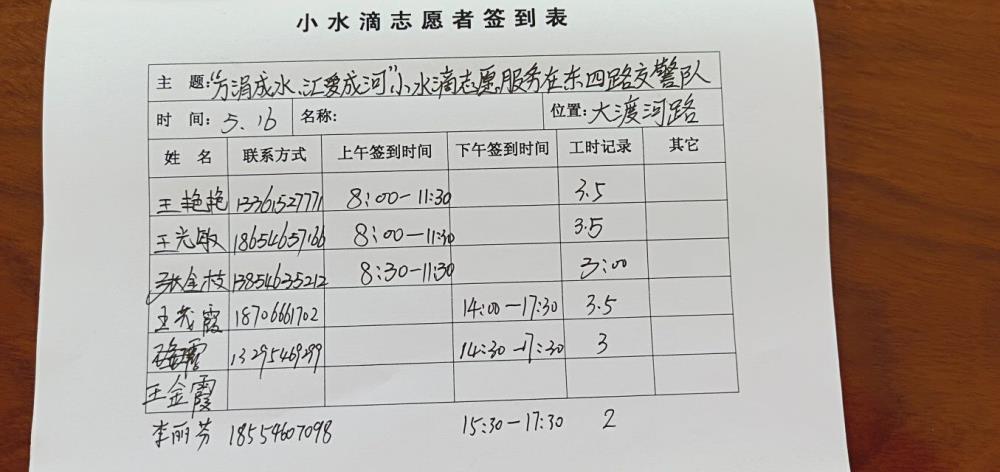 小水滴志愿者签到表
主 题:“方涓成水、汇爱成河”小水滴志愿服务在东四路交警队
时 间:5.16 名称: 位置:大渡河路
姓 名 联系方式 上午签到时间 下午签到时间 工时记录 其它
王艳艳 13361527771 8:00-11:30 3.5
王光敏 18654637166 8:00-11:30 3.5
张金枝 13854635212 8:30-11:30 3:00
王 霞 18706661702 14:00-17:30 3.5
14:30-17:30 3
王金霞
李丽芬 18554607098 15:30-17:30 2